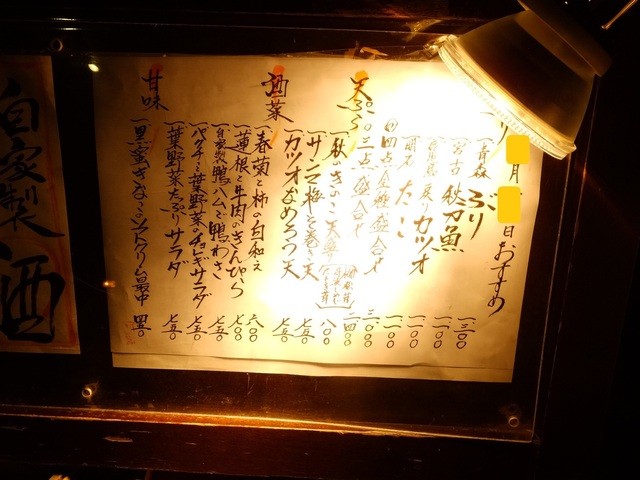 月
日おすすめ
青森 ぶり 一三〇〇
宮古 秋刀魚 一一〇〇
戻りカツオ 一一〇〇
明石 たこ 一一〇〇
四点 盛合せ
三点 盛合せ
天ぷら
一、秋のきのこ天ぷら 八〇〇
一、サンマ梅しそ巻き天 七五〇
一、カツオなめろう天 七五〇
酒菜
一、春菊と柿の白和え 六〇〇
一、蓮根と牛肉のきんぴら 七〇〇
一、自家製鴨ハムで鴨わさ 七五〇
一、パクチーと葉野菜のチョレギサラダ 七五〇
一、葉野菜たっぷりサラダ 七五〇
甘味
一、黒蜜きなこのソフトクリーム最中
自家製
酒